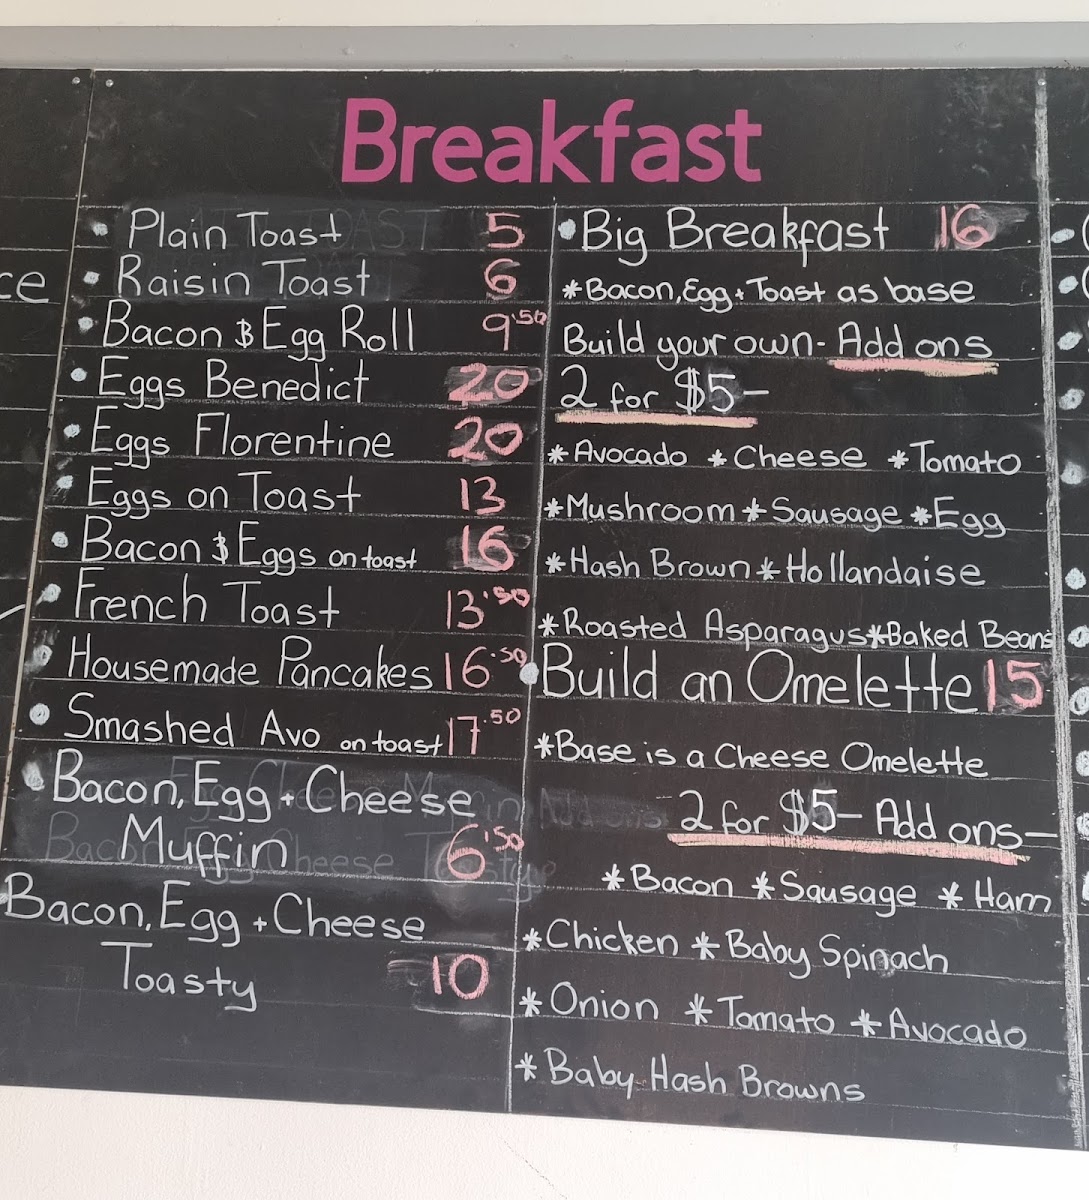 Breakfast
Plain Toast 5
Raisin Toast 6
Bacon & Egg Roll 9.50
Eggs Benedict 20
Eggs Florentine 20
Eggs on Toast 13
Bacon & Eggs on toast 16
French Toast 13.50
Housemade Pancakes 16.50
Smashed Avo on toast 17.50
Bacon, Egg + Cheese
Muffin 6.50
Bacon, Egg + Cheese
Toasty 10
Big Breakfast 16
*Bacon, Egg + Toast as base
Build your own - Add ons
2 for $5-
*Avocado *Cheese *Tomato
*Mushroom *Sausage *Egg
*Hash Brown *Hollandaise
*Roasted Asparagus *Baked Beans
Build an Omelette 15
*Base is a Cheese Omelette
2 for $5- Add ons-
*Bacon *Sausage *Ham
*Chicken *Baby Spinach
*Onion *Tomato *Avocado
*Baby Hash Browns
ce